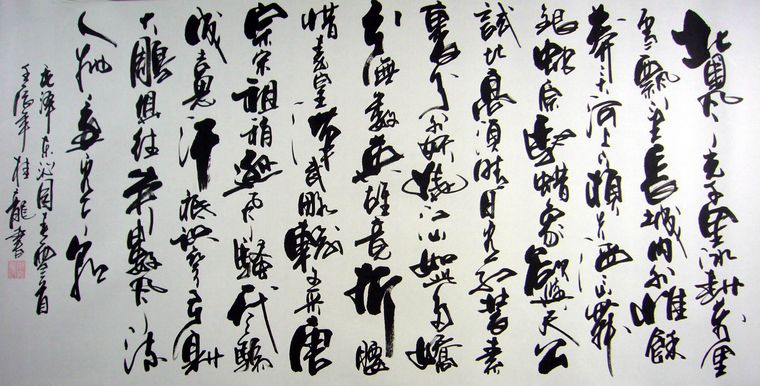 北国风光千里冰封万里
雪飘望长城内外惟馀
莽莽大河上下顿失滔滔山舞
银蛇原驰蜡象欲与天公
试比高须晴日看红装素
裹分外妖娆江山如此多娇
引無數英雄竞折腰
惜秦皇漢武略輸文采唐
宗宋祖稍逊风骚一代天骄
成吉思汗祇識彎弓射
大雕俱往矣數风流
人物還看今朝
毛泽东沁园春雪一首
年桂龍書